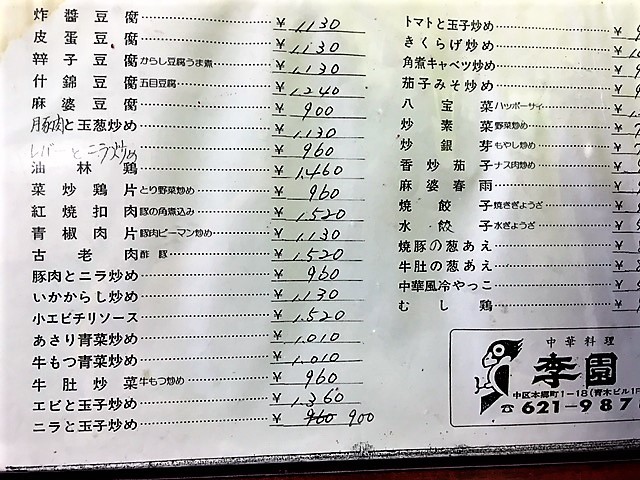 炸醬豆腐 ¥1,130
皮蛋豆腐 ¥1,130
辣子豆腐 からし豆腐うま煮 ¥1,130
什錦豆腐 五目豆腐 ¥1,240
麻婆豆腐 ¥900
豚肉と玉葱炒め ¥1,130
レバーとニラ炒め ¥960
油林鶏 ¥1,460
菜炒鶏片 とり野菜炒め ¥960
紅焼扣肉 豚の角煮込み ¥1,520
青椒肉片 豚肉ピーマン炒め ¥1,130
古老肉 酢豚 ¥1,520
豚肉とニラ炒め ¥960
いかからし炒め ¥1,130
小エビチリソース ¥1,520
あさり青菜炒め ¥1,010
牛もつ青菜炒め ¥1,010
牛肚炒菜 牛もつ炒め ¥960
エビと玉子炒め ¥1,360
ニラと玉子炒め ¥960 900
トマトと玉子炒め ¥
きくらげ炒め ¥
角煮キャベツ炒め ¥
茄子みそ炒め ¥
八宝菜 ハッポーサイ ¥
炒素菜 野菜炒め ¥
炒銀芽 もやし炒め ¥
香炒茄子 ナス肉炒め ¥
麻婆春雨 ¥
焼餃子 焼きぎょうざ ¥
水餃子 水ぎょうざ ¥
焼豚の葱あえ ¥
牛肚の葱あえ ¥
中華風冷やっこ ¥
むし鶏 ¥
中華料理
李園
中区本郷町1-18(青木ビル1F
☎621-987